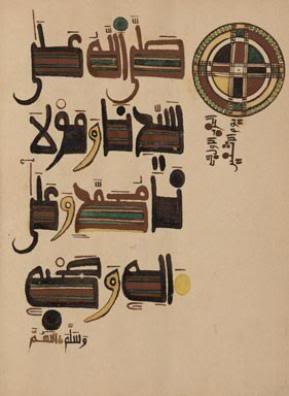 صلى الله على
سيدنا ومولا
نا محمد وعلى
اله وصحبه
وسلم
يوم الاثنين